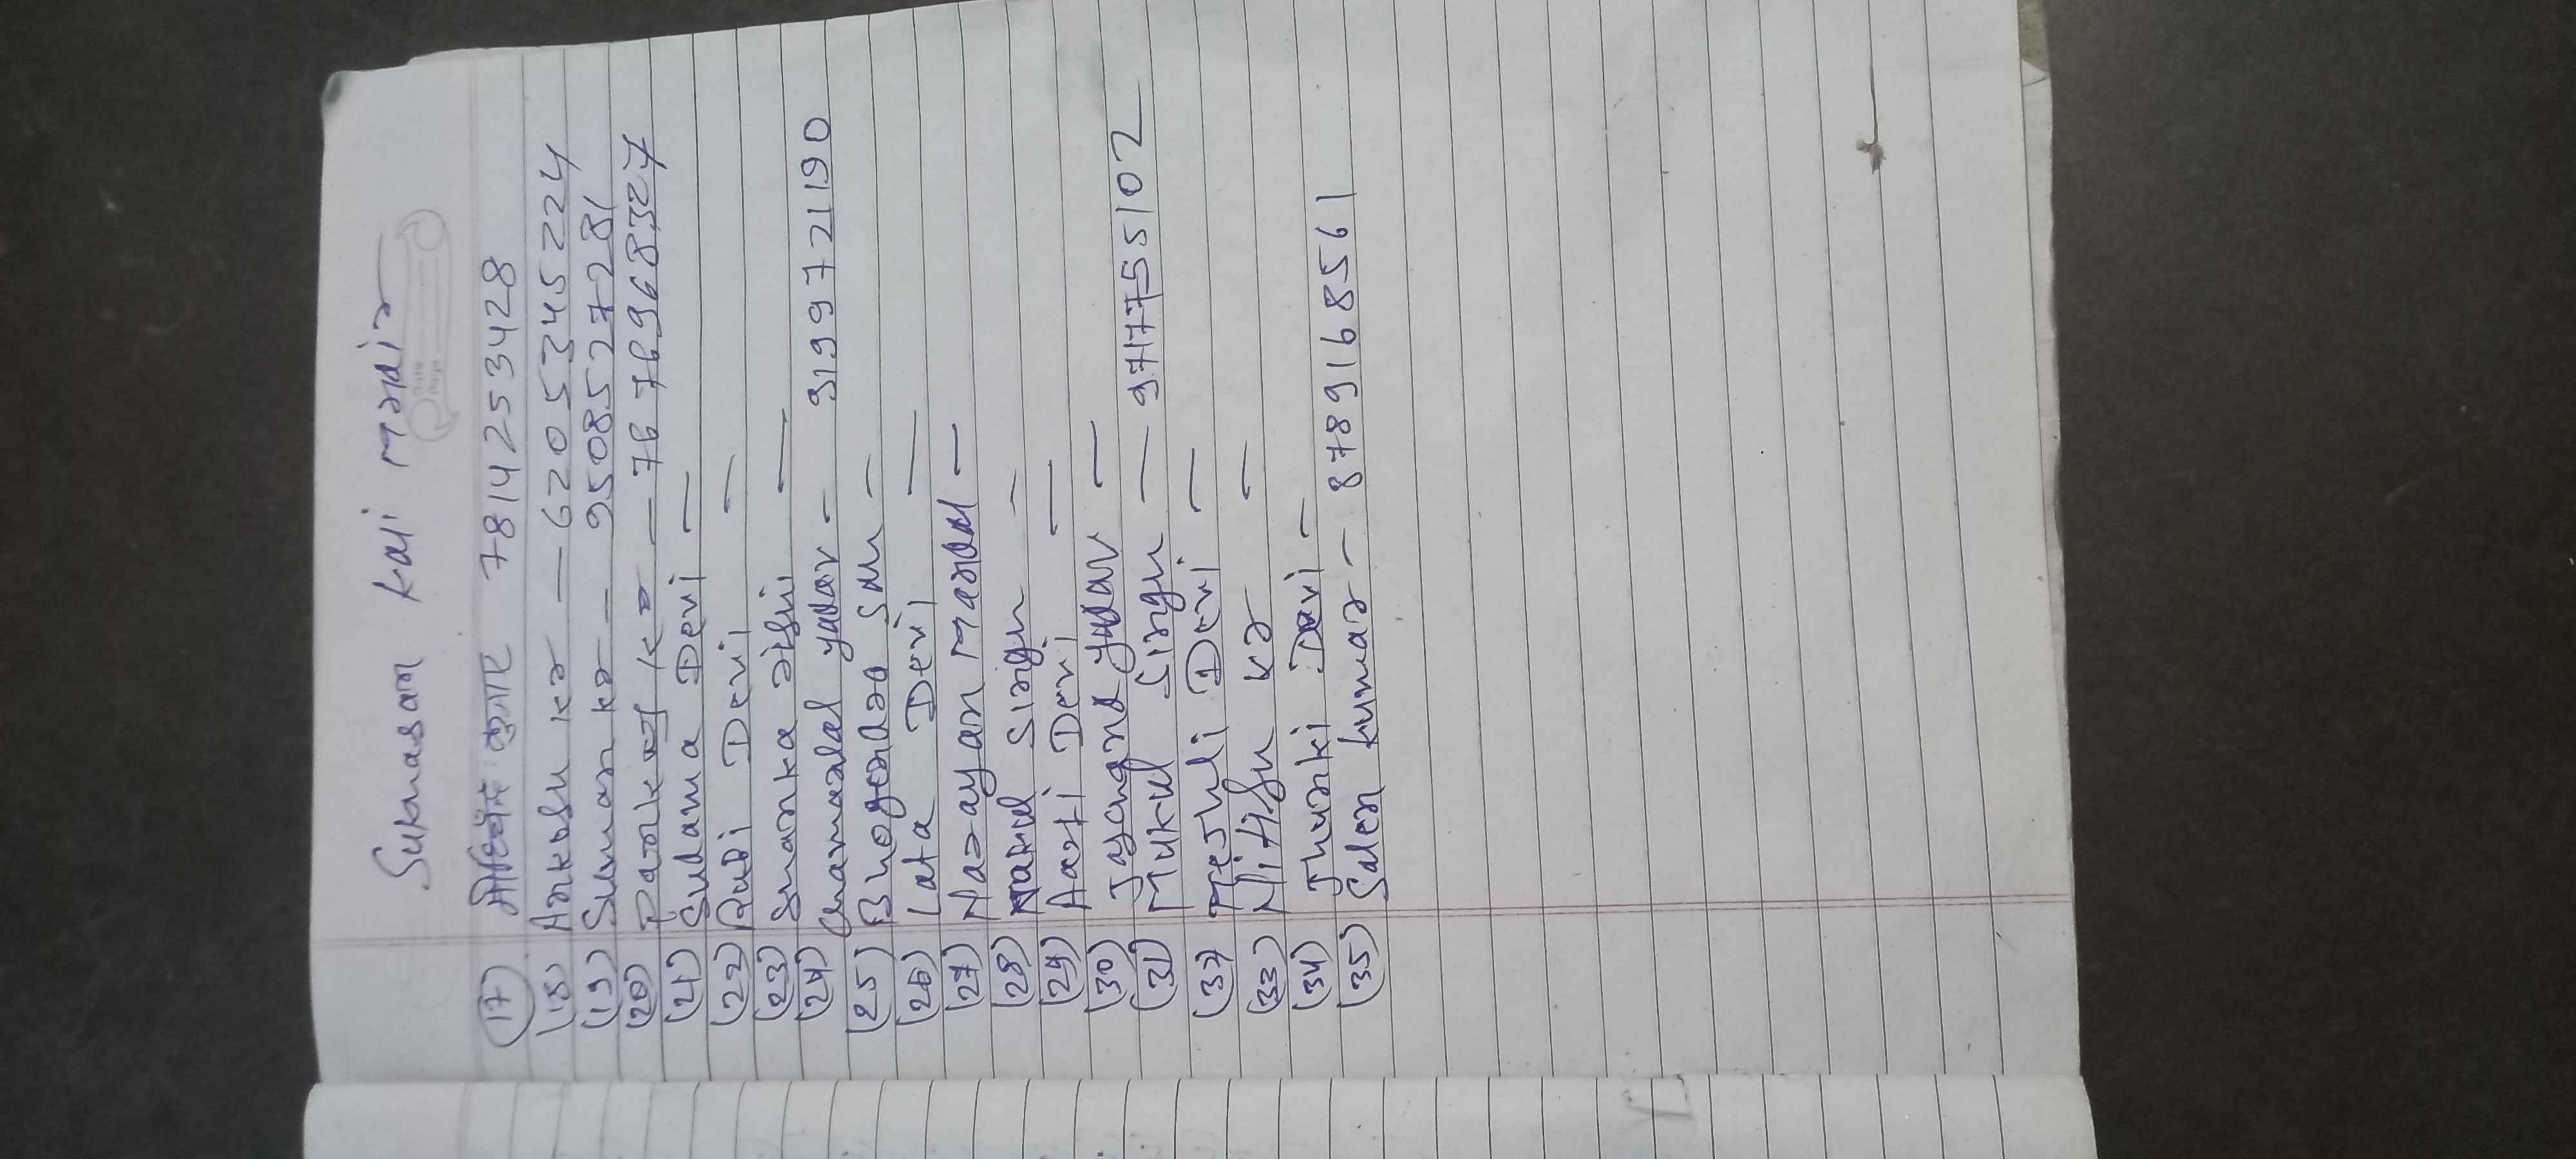 Sukhasan kali Mandir
Date
Page
(17) कुमार 7814253428
(18) Ankosh Kr — 6205345224
(19) Suman kr — 9508527281
(20) Kr — 7676968327
(21) Sudama Devi —
(22) Rubi Devi —
(23) Shanka —
(24) Charmalal yadav - 3199721190
(25) Bhogendra Sah —
(26) Lata Devi —
(27) Narayan Mandal —
(28) Nakul Singh —
(29) Aarti Devi —
(30) Jayanand yadav —
(31) Mukul Singh — 9717755102
(32) Devi —
(33) Nitishu kr —
(34) Jhunki Devi —
(35) Salen kumar — 8789168561